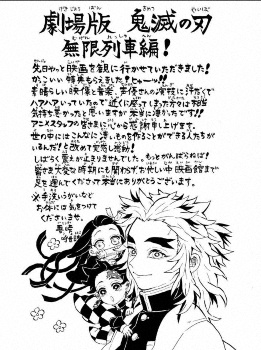 劇場版 鬼滅の刃
無限列車編！
先日やっと映画を観に行かせていただきました！
かっこいい特典もらえました！ヒョーッ!!
素晴らしい映像と音楽、声優さんの演技に汗だくで
ハアハアいっていたので近くに座ってしまった方々は相当
気持ち悪かったと思いますが本当に凄かったです!!
アニメスタッフの皆さまに心から感謝申し上げます。
世の中にはこんなに凄いものを作ることができる人たちが
いるんだ！と改めて実感し感動！
しばらく震えが止まりませんでした。もっとがんばらねば！
皆さま大変な時期にも関わらずお忙しい中映画館まで
足を運んでくださって本当にありがとうございます。
※手洗いうがいなど
お体には気をつけて
くださいませ。
吾峠
呼世晴